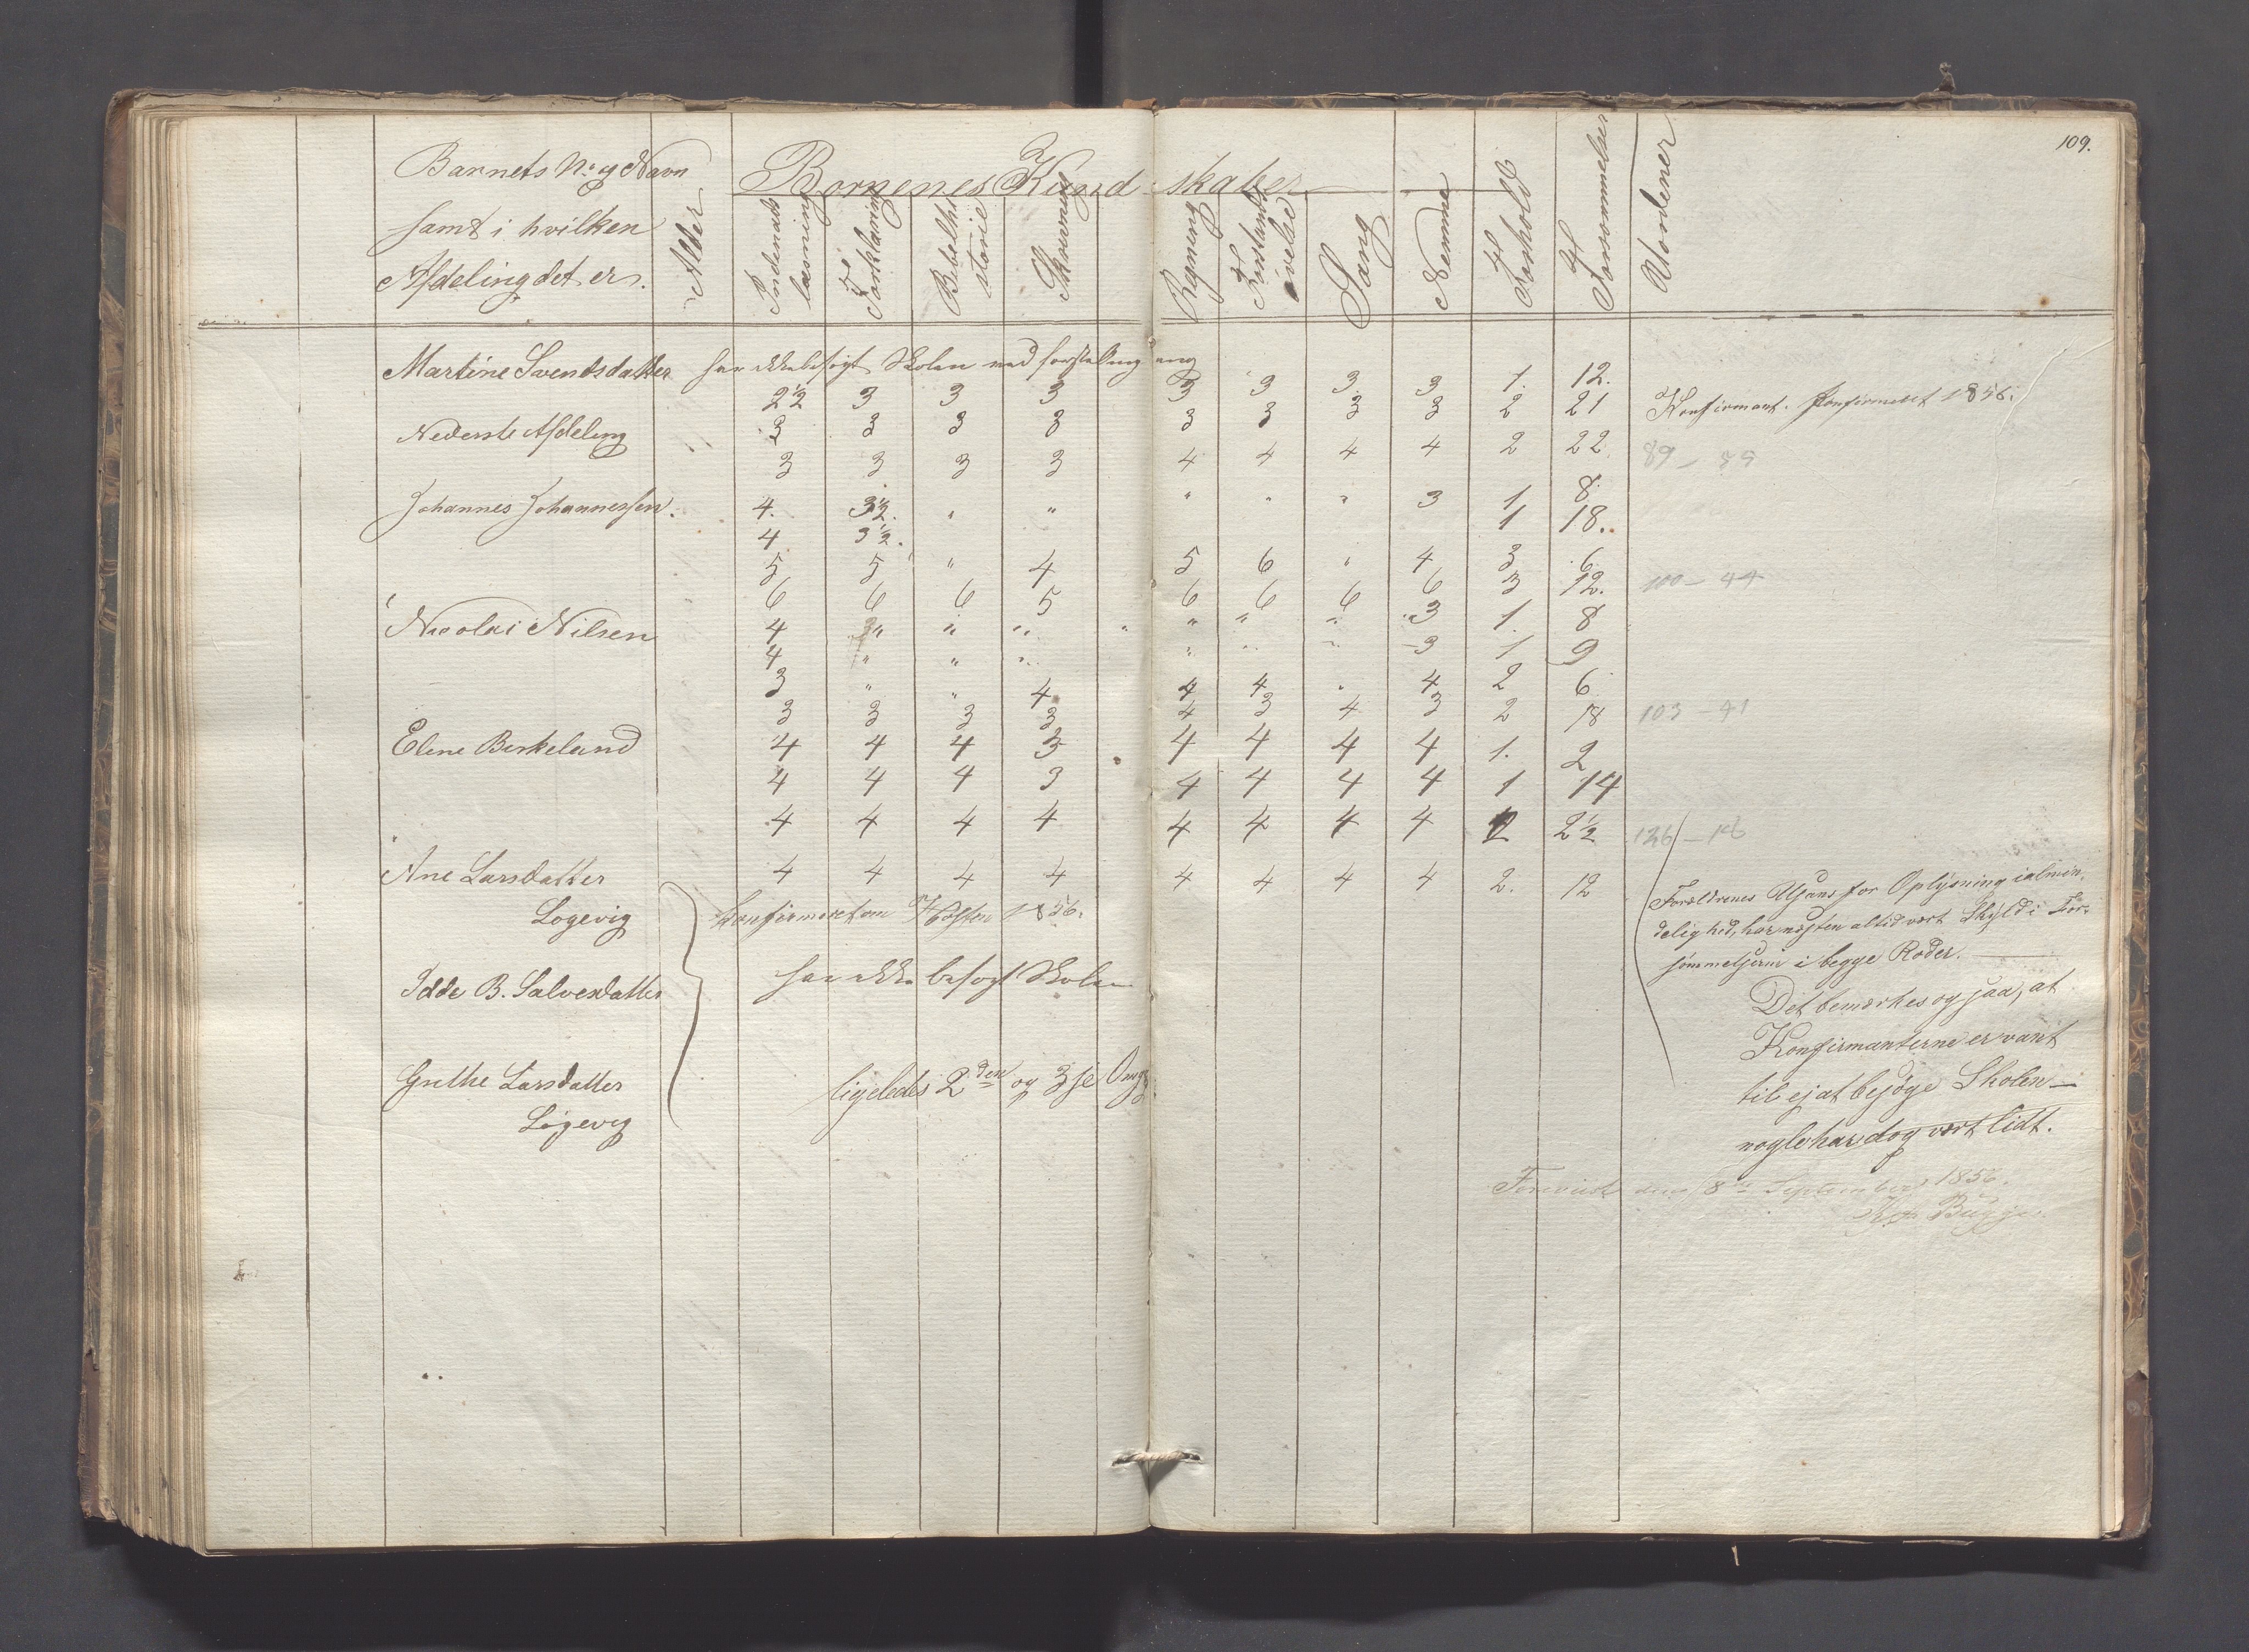 109.
Barnets No: og Navn
samt i hvilken
Afdeling det er.
Alder
Børnenes Kund-skaber
Indenads læsning
Forklaring
Bibelhi storie
Skrivning
Regning
Sang
Nemme
Forhold
Forsømmelser
Martine Svendsdatter har ikke besøgt Skolen
3 3 3 3 1. 12.
2½ 3 3 3 3 3 3 3 2 21 Konfirmant. Konfirmeret 1856.
Nederste Afdeling 3 3 3 3
3 3 3 3 4 4 4 4 2 22. 89 –
Johannes Johannessen. 4. 3½. " " " " " 3 1 8.
4 3½. 1 18.
5 5 " 4 5 6 " 4 3 6.
6 6 6 5 6 6 6 6 3 12. 100 – 44
Nicolai Nilsen 4 " " " " " " " 3 1. 8
4 " " " " " " 3 1 9
3 " " 4 4 4 " 4 2 6
3 3 3 3 4 3 4 3 2 18 103 – 41
Eline Birkeland 4 4 4 3 4 4 4 4 1. 2
4 4 4 3 4 4 4 4 1 14
4 4 4 4 4 4 4 4 2 2½ 126 –
Ane Larsdatter 4 4 4 4 4 4 4 4 2. 12
Logevig Konfirmeret om Høsten 1856.
Forældrenes Ulyst for Oplysning i almin-
delighed, har næsten altid vært Skyld i For-
sømmelserne i begge Roder.
Idde B. Salvesdatter har ikke besøgt Skolen
Det bemærkes ogsaa, at
Konfirmanterne er vant
Grethe Larsdatter ligeledes 2den og 3je Omg.
Løgevig
til ej at besøge Skolen –
nogle har dog vært lidt.
Foreviist den 8de September 1856.
Bugge